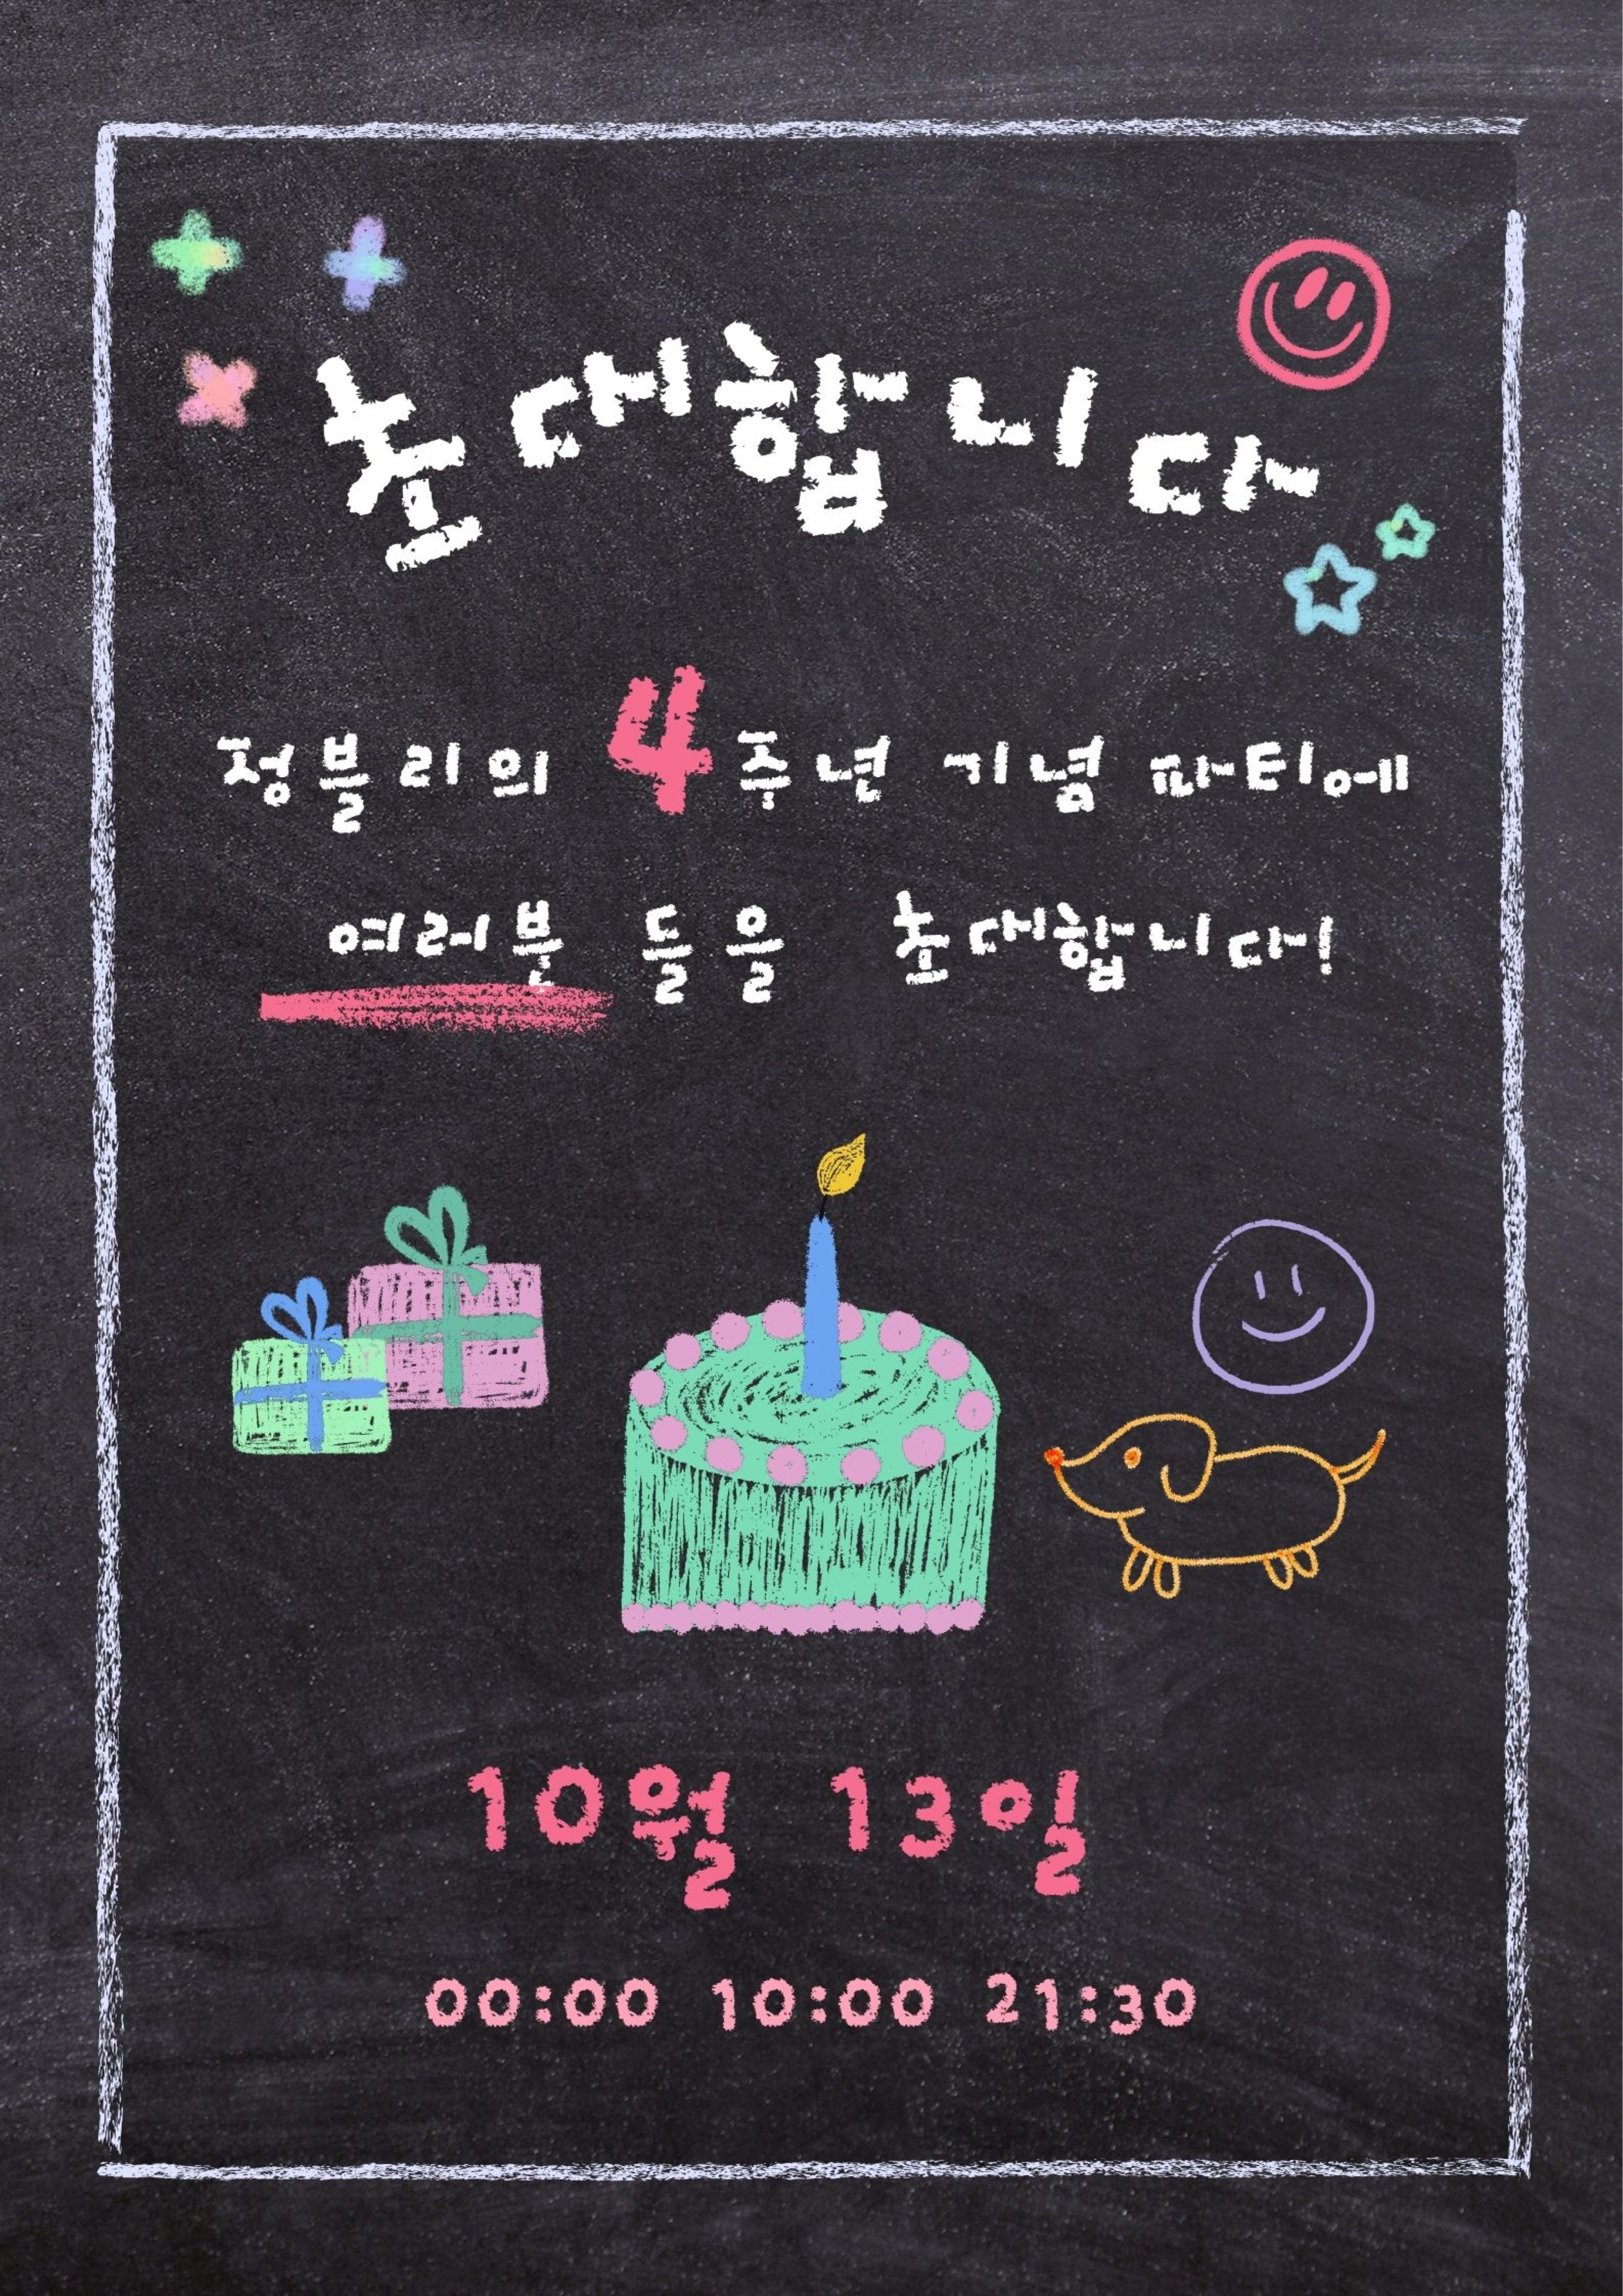 초대합니다
정블리의 4주년 기념 파티에
여러분 들을 초대합니다!
10월 13일
00:00 10:00 21:30